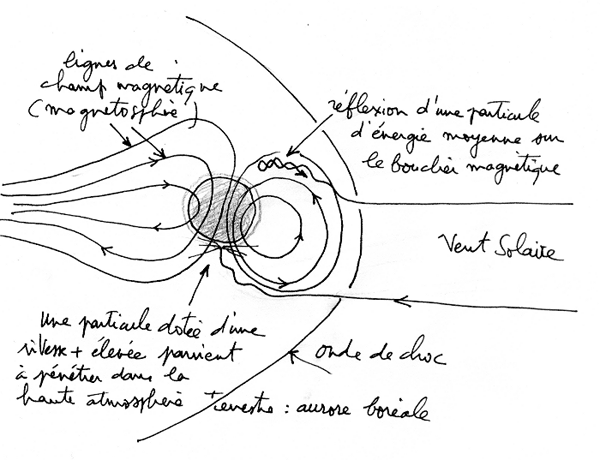 lignes de
champ magnétique
(magnétosphère)
réflexion d'une particule
d'énergie moyenne sur
le bouclier magnétique
Vent Solaire
Une particule dotée d'une
vitesse + élevée parvient
à pénétrer dans la
haute atmosphère Terrestre : aurore boréale
onde de choc